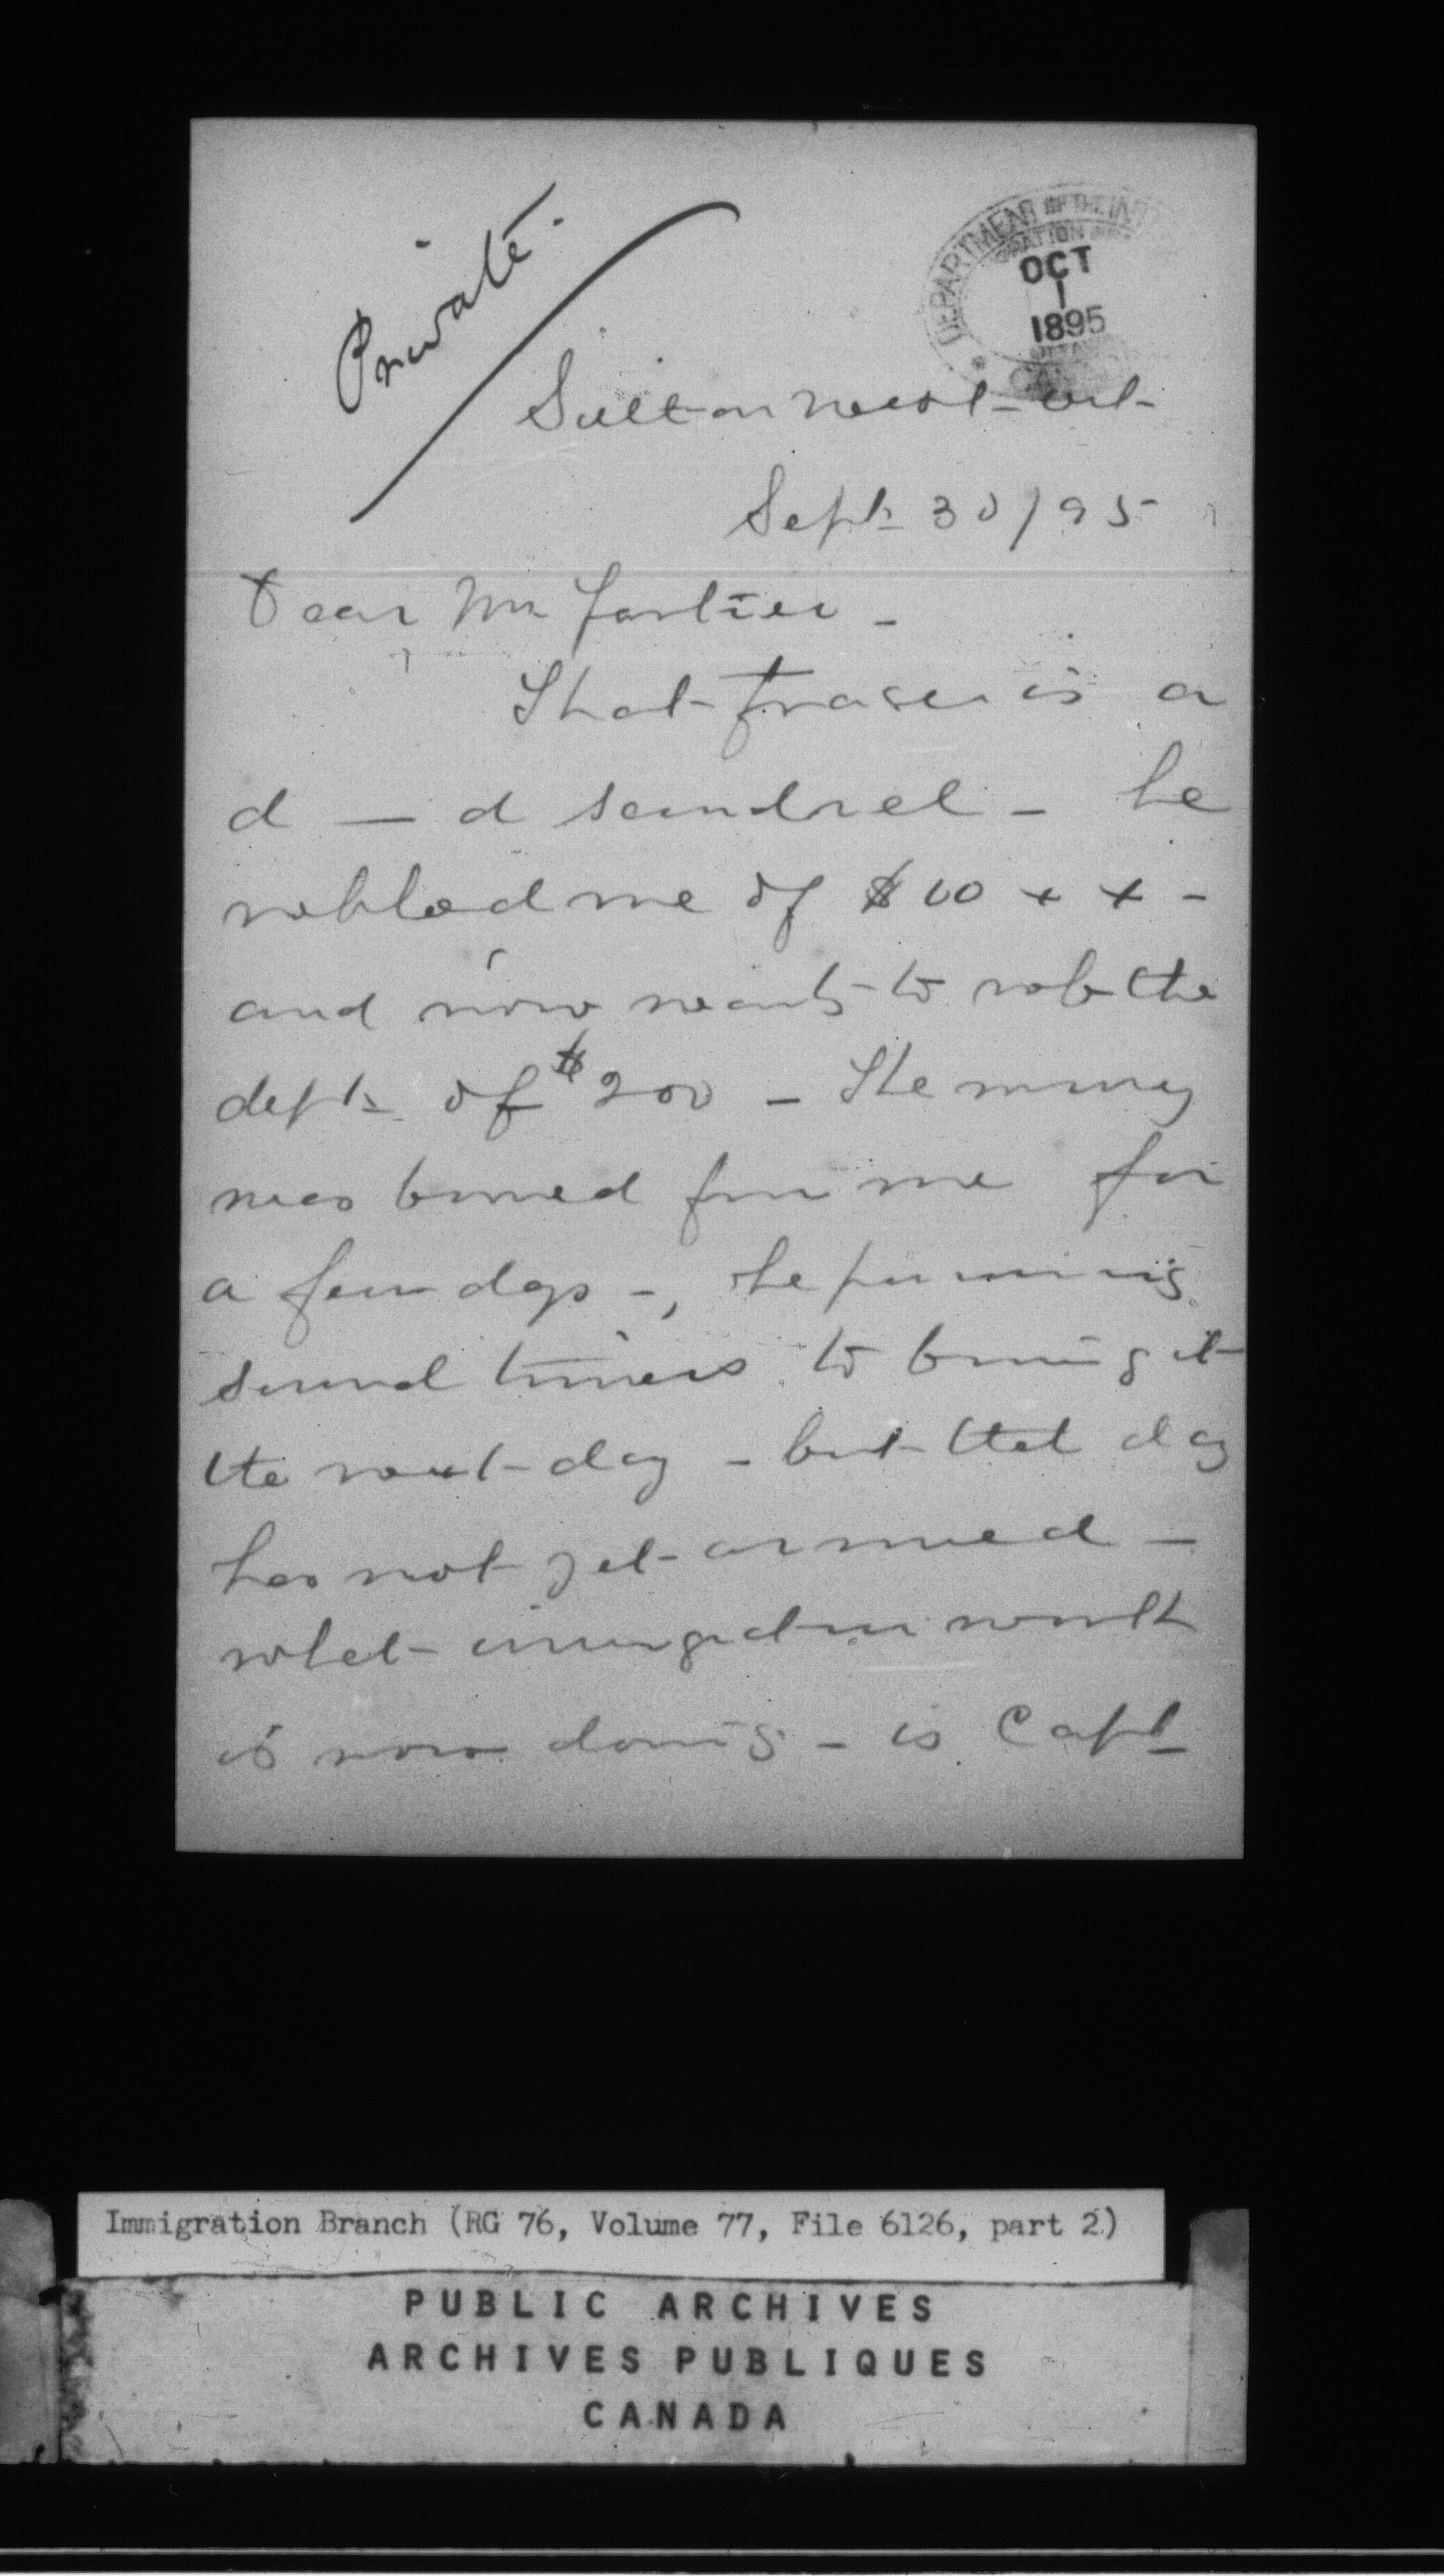 Private.
DEPARTMENT OF THE INT
OCT
1
1895
OTTAWA
Sutton West - Ont -
Sept 30/95
Dear Mr Fortier -
That Fraser is a
d — d scoundrel - he
robbed me of $10 x x -
and now wants to rob the
dept of $200 - The money
was borrowed from me for
a few days -, he promising
several times to bring it
the next day - but that day
has not yet arrived -
what immigration work
is now doing - is Capt
Immigration Branch (RG 76, Volume 77, File 6126, part 2)
PUBLIC ARCHIVES
ARCHIVES PUBLIQUES
CANADA